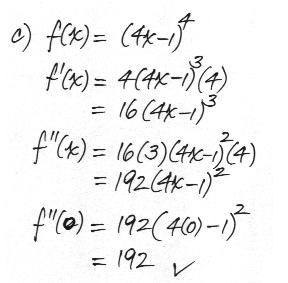 c) f(x) = (4x-1)⁴
f'(x) = 4(4x-1)³(4)
= 16(4x-1)³
f''(x) = 16(3)(4x-1)²(4)
= 192(4x-1)²
f''(0) = 192(4(0)-1)²
= 192 ✓